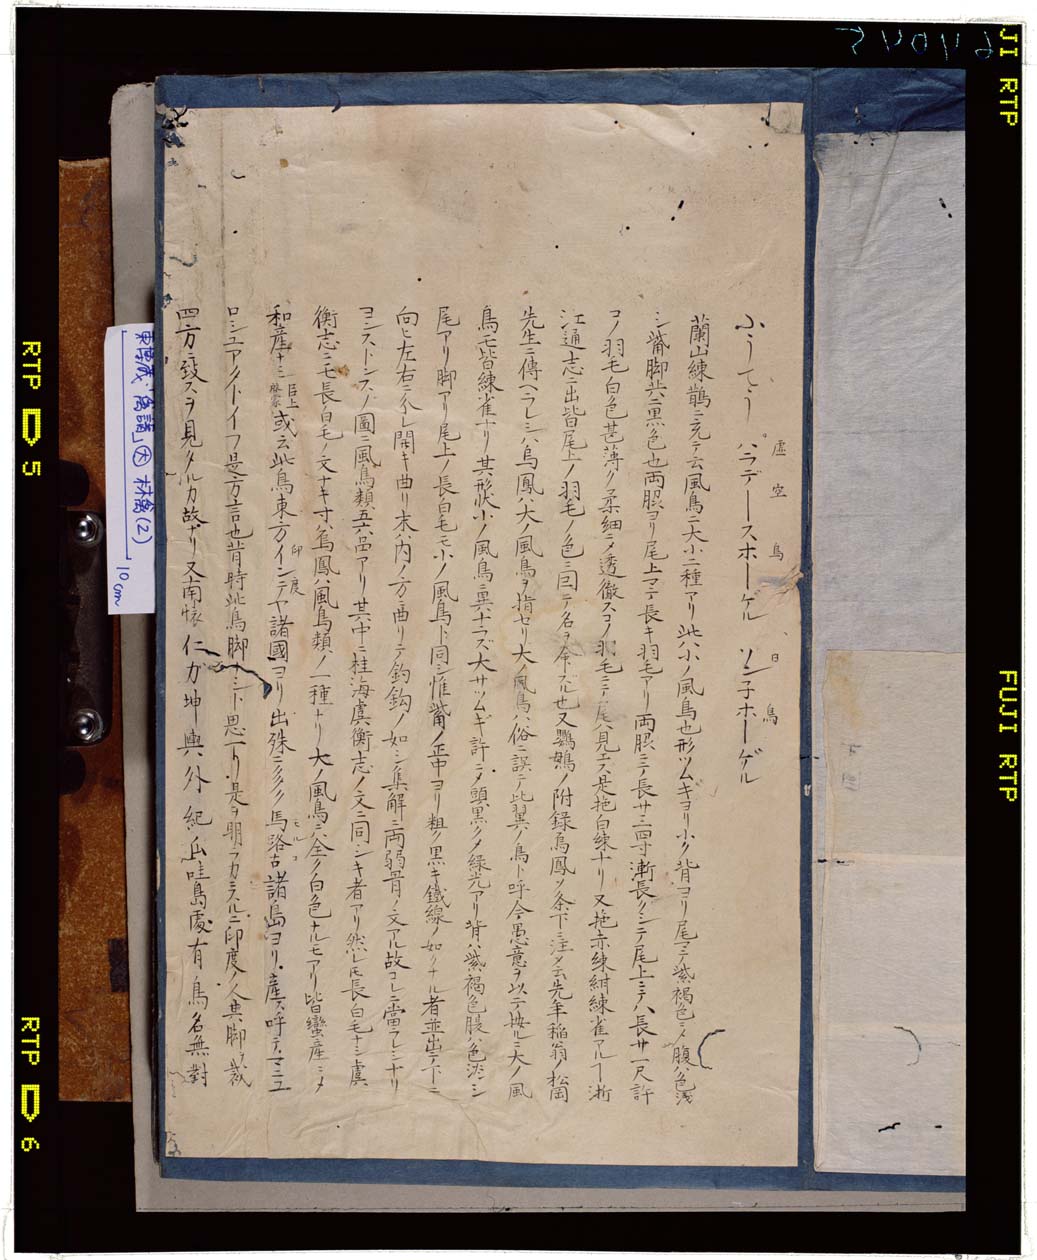 ふうてう パラデースホーゲル ソン子ホーゲル
虚空鳥、日鳥
蘭山練鵲ニ充テ云風鳥ニ大小二種アリ此小ノ風鳥也形ツムギヨリ小ク背ヨリ尾マテ紫褐色ニメ腹ハ色浅
シ觜脚共ニ黒色也両脇ヨリ尾上マテ長キ羽毛アリ両脇ニテ長サ三四寸漸長クシテ尾上ニテハ長サ一尺許
コノ羽毛白色甚薄ク柔細ニメ透徹スコノ羽毛ニテ尾ハ見エス是拖白練ナリ又拖赤練紺練雀アルヿ浙
江通志ニ出皆尾上ノ羽毛ノ色ニ因テ名ヲ命ズル也又鸚䳇ノ附録鳥鳳ノ条下ニ注メ云先年稲翁ノ松岡
先生ニ傳ヘラレシハ鳥鳳ハ大ノ風鳥ヲ指セリ大ノ風鳥ハ俗ニ誤テ比翼ノ鳥ト呼今愚意ヲ以テ按ルニ大ノ風
鳥モ皆練雀ナリ其形状小ノ風鳥ニ異ナラズ大サツムギ許ニメ頭黒クメ緑光アリ背ハ紫褐色腹ハ色淡シ
尾アリ脚アリ尾上ノ長白毛モ小ノ風鳥ト同シ惟觜ノ正中ヨリ粗ク黒キ鐵線ノ如クナル者並出テ下ニ
向ヒ左右ニ分レ開キ曲リ末ハ内ノ方ニ曲リテ釣鈎ノ如シ集解ニ両弱骨ノ文アル故コレニ當ラレシナリ
ヨンストンスノ圖ニ風鳥類五六品アリ其中ニ桂海虞衡志ノ文ニ同シキ者アリ然レ𪜈長白毛ナシ虞
衡志ニモ長白毛ノ文ナキ寸ハ鳥鳳ハ風鳥類ノ一種ナリ大ノ風鳥ニハ全ク白色ナルモアリ皆蠻産ニメ
和産ナシ 已上啓蒙 或云此鳥東方インデヤ諸國ヨリ出殊ニ多ク馬路古諸島ヨリ産ス呼テマニユ
印度
モルコ
ロシユアタトイフ是方言也昔時此鳥脚ナシト思ヘリ是ヲ明ラカニスルニ印度ノ人其脚ヲ裁
四方ニ致スヲ見タルカ故ナリ又南懐仁ガ坤輿外紀瓜哇島處有鳥名無對
東博蔵「禽譜」因 林禽(2)
10cm
RTP 5
RTP 6
FUJI RTP
FUJI RTP